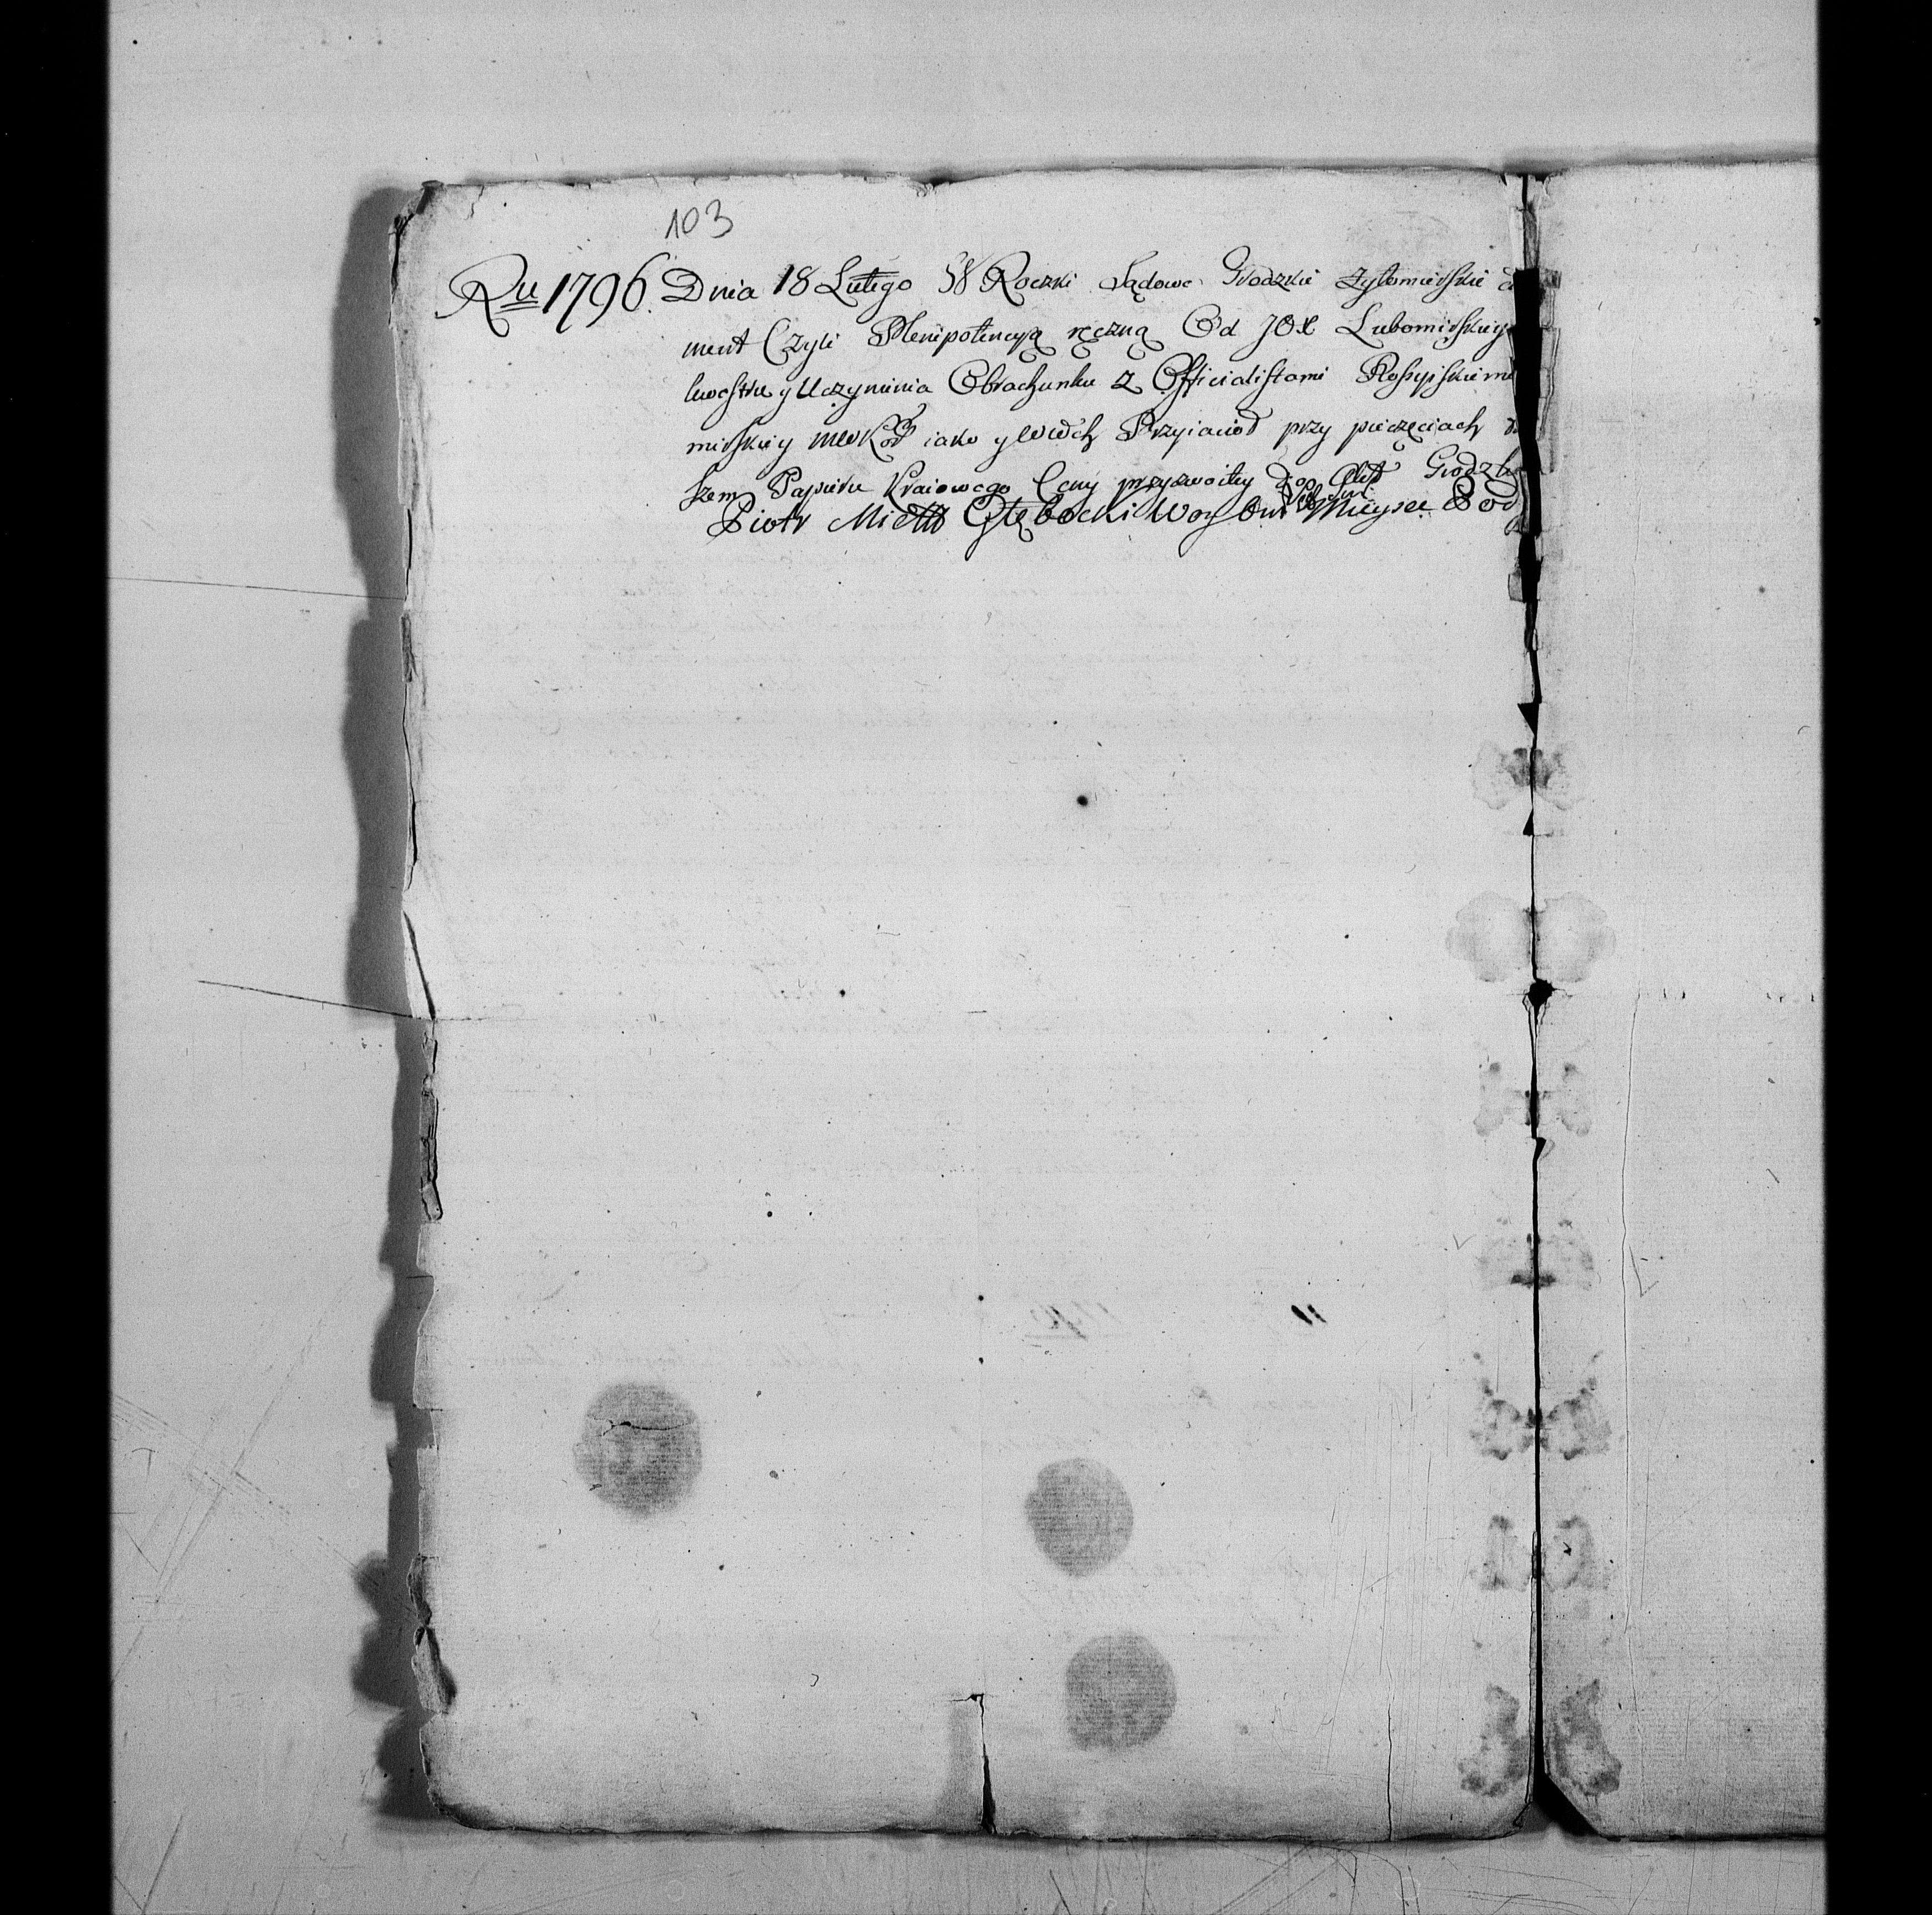 103
Ru 1796. Dnia 18 Lutego W Roczki Sądowe Grodzkie Zytomirskie
ment Czyli Plenipotencyą ręczną Od JOX Lubomirskiey
lwostru y Uczynienia Obrachunku z Officialistami Rossyiskiemi
mirskiey jako y Przyiacioł przy pieczęciach
szem Papieru Kraiowego Ceny przyzwoitey Grodzk
Piotr Głębocki Mieysce Pod